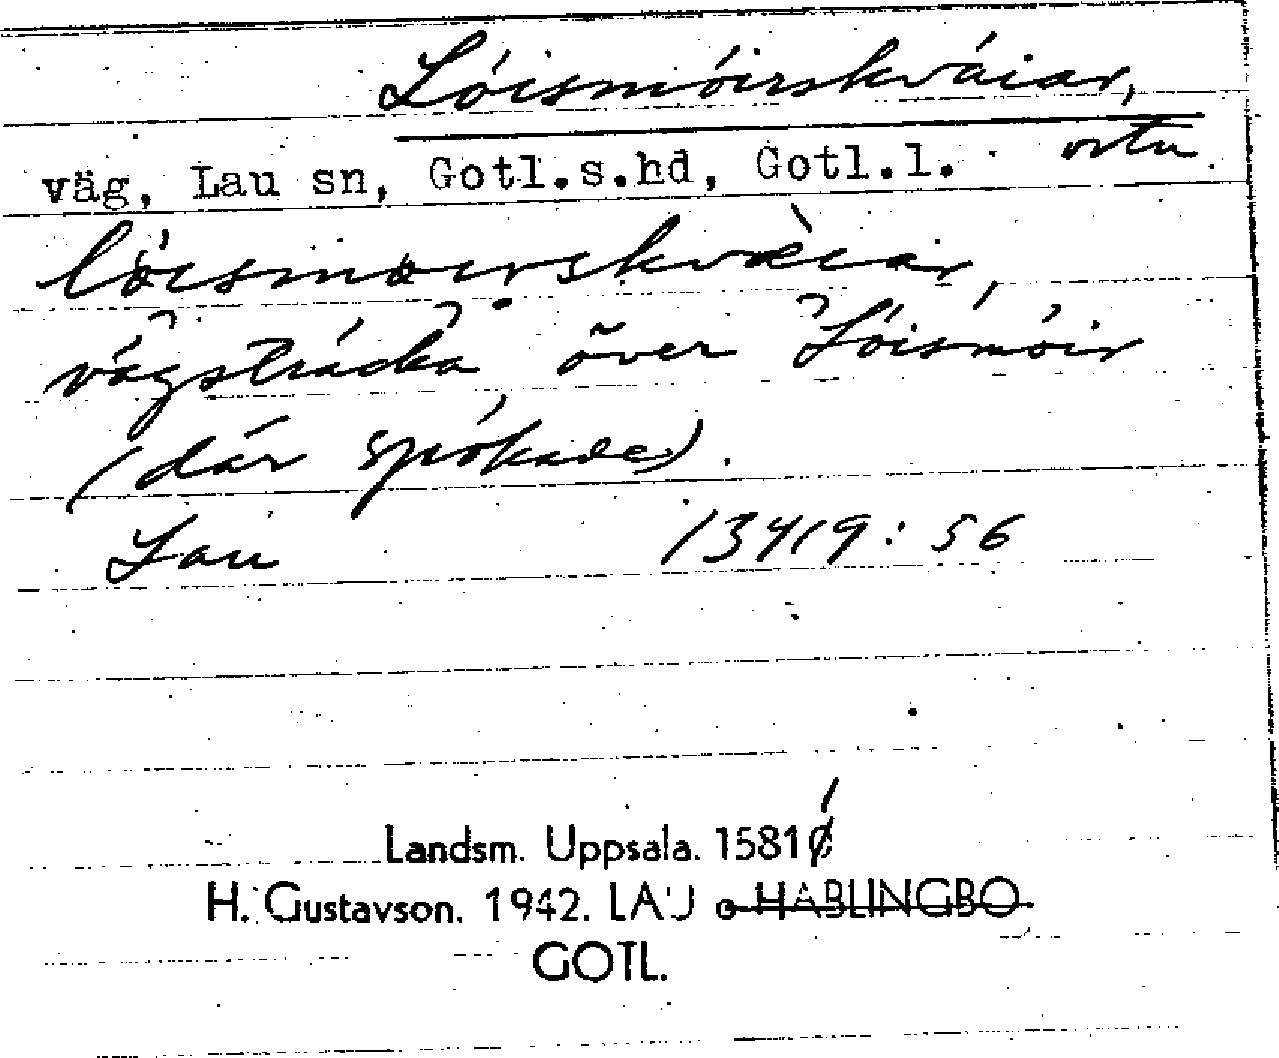 Lóismóirskváiar,
väg, Lau sn, Gotl.s.hd, Gotl.l. ortn.
lóismoirskvæ̀iar,
vägsträcka över Lóismóir
(där spökade).
Lau 13419:56
Landsm. Uppsala. 1581
H. Gustavson. 1942. LAU o HABLINGBO
GOTL.